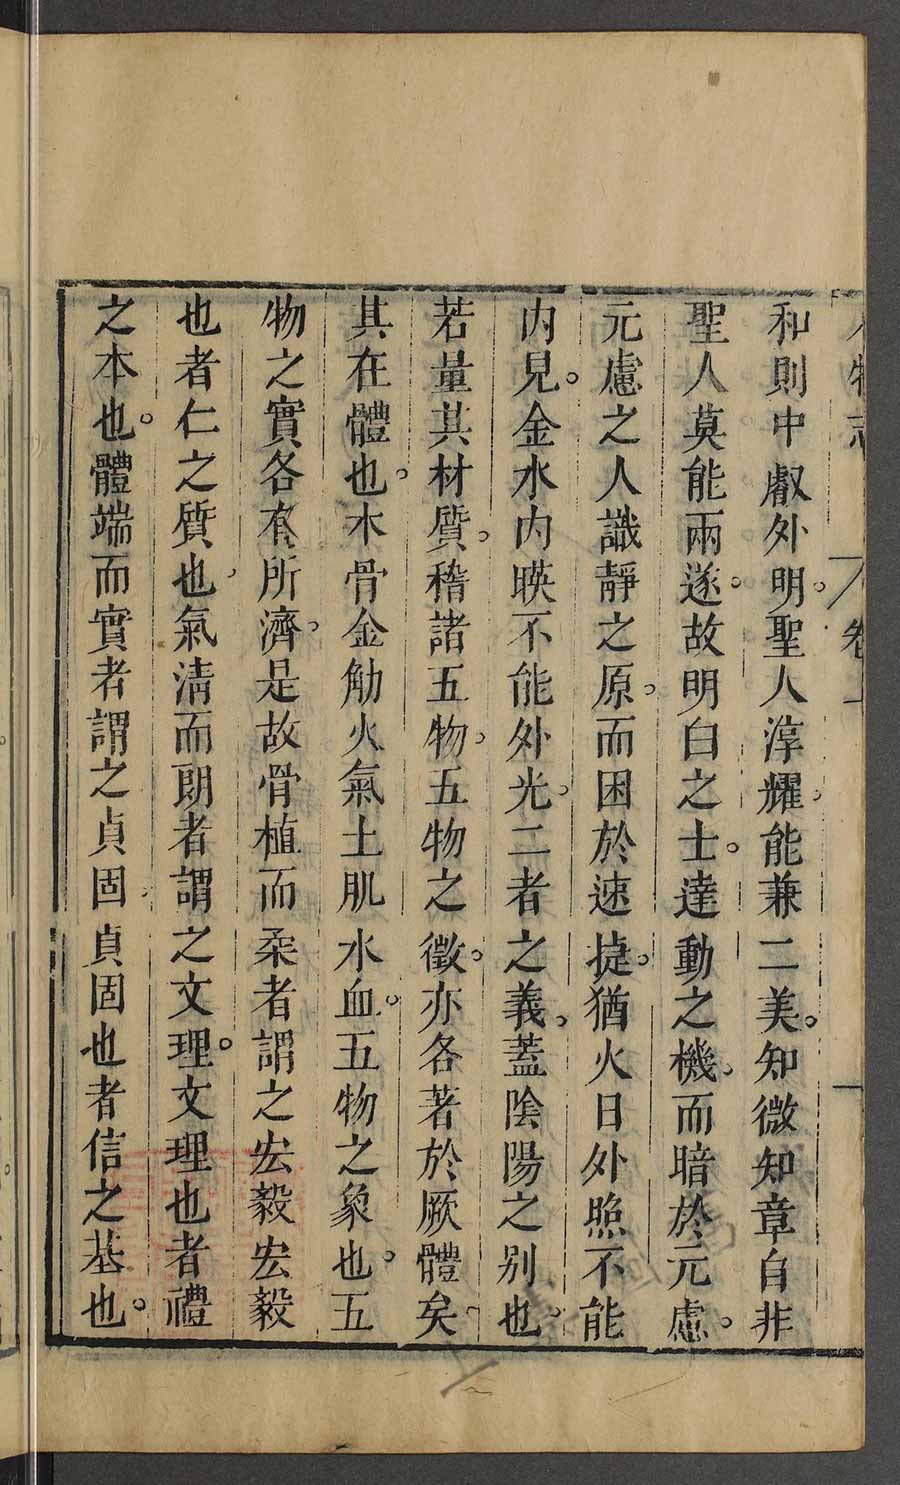 人物志 卷上 一
和則中叡外明。聖人淳耀。能兼二美。知微知章自非
聖人莫能兩遂。故明白之士。達動之機。而暗於元慮。
元慮之人識靜之原。而困於速捷。猶火日外照不能
內見。金水內暎不能外光。二者之義。蓋陰陽之别也。
若量其材質。稽諸五物。五物之徵。亦各著於厥體矣。
其在體也。木骨金觔火氣土肌水血。五物之象也。五
物之實各有所濟。是故骨植而柔者謂之宏毅宏毅
也者仁之質也。氣清而朗者謂之文理。文理也者禮
之本也。體端而實者謂之貞固。貞固也者信之基也。